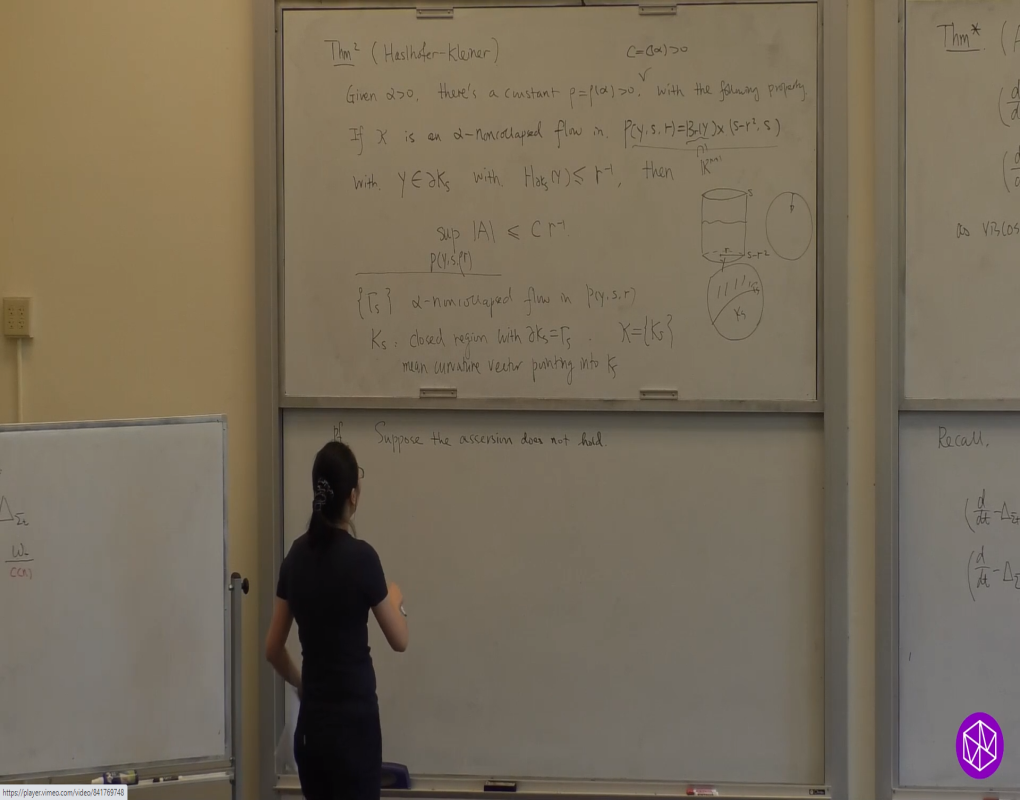 Thm² (Haslhofer-Kleiner)
C=C(α)>0
Given α>0, there's a constant ρ=ρ(α)>0, with the following property
If K is an α-noncollapsed flow in P(y,s,r)=Br(y)×(s-r²,s)
with y∈∂Ks with H∂Ks(y)≤r⁻¹, then
ℝⁿ⁺¹
sup |A| ≤ C r⁻¹
P(y,s,ρr)
s
s-r²
{Γs} α-noncollapsed flow in P(y,s,r)
Ks: closed region with ∂Ks=Γs. K={Ks}
Ks
mean curvature vector pointing into Ks
pf Suppose the assersion does not hold
Thm*. (A
as
Recall,
(d/dt - Δ_Σt
(d/dt - Δ_Σ
Δ_Σt
https://player.vimeo.com/video/841769748